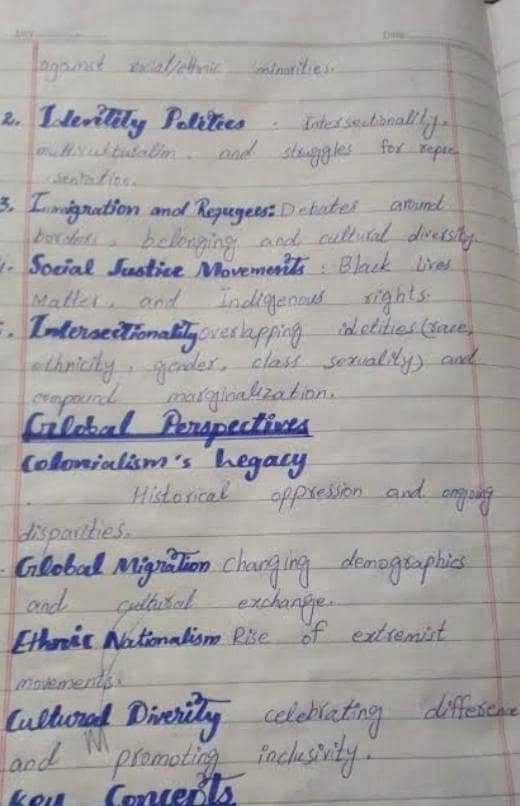 against racial/ethnic minorities.
2. Identity Politics : Intersectionality,
multiculturalim, and struggles for repre
sentation.
3. Immigration and Regugees: Debates around
borders, belonging and cultural diversity.
4. Social Justice Movements : Black lives
Matter, and Indigenous rights.
5. Intersectionality overlapping idetities (race,
ethnicity, gender, class sexuality) and
compound marginalization.
Global Perspectives
Colonialism's legacy
Historical oppression and ongoing
disparities.
Global Migration changing demographics
and cultural exchange.
Ethnic Nationalism Rise of extremist
movements.
Cultural Diverity celebrating difference
and promoting inclusivity.
Key Concepts